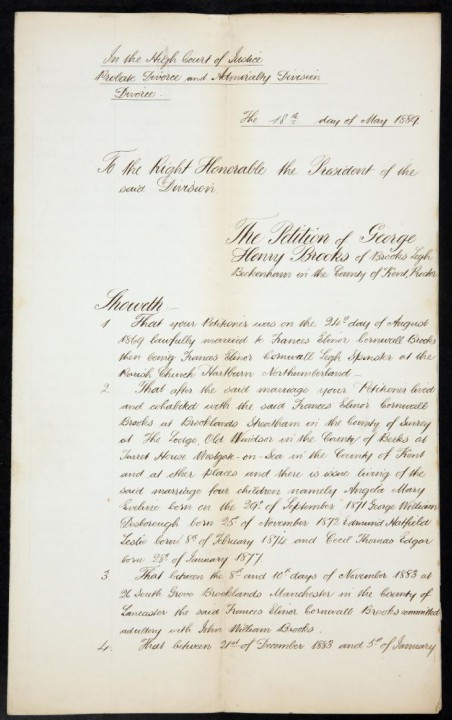 In the High Court of Justice
Probate Divorce and Admiralty Division
Divorce.
The 18th day of May 1889.
To the Right Honorable the President of the
said Division
The Petition of George
Henry Brooks of Brooks Legh
Beckenham in the County of Kent, Proctor
Sheweth,
1 That your Petitioner was on the 24th day of August
1869 lawfully married to Frances Elinor Cornwall Brooks
then being Frances Elinor Cornwall Legh Spinster at the
Parish Church Hartburn Northumberland
2. That after the said marriage your Petitioner lived
and cohabited with the said Frances Elinor Cornwall
Brooks at Brooklands Streatham in the County of Surrey
at The Lodge, Old Windsor in the County of Berks at
Turret House Westgate-on-Sea in the County of Kent
and at other places and there is issue living of the
said marriage four children namely Angela Mary
Eveline born on the 29th of September 1871 George William
Desborough born 25th of November 1872 Edmund Hatfield
Leslie born 8th of February 1874 and Cecil Thomas Edgar
born 28th of January 1877.
3. That between the 8th and 10th days of November 1883 at
26 South Grove Brooklands Manchester in the County of
Lancaster the said Frances Elinor Cornwall Brooks committed
adultery with John William Brooks.
4. That between 21st of December 1883 and 5th of January